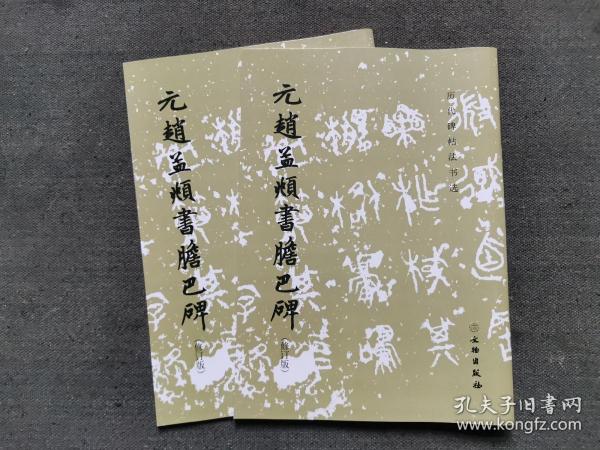 元趙孟頫書膽巴碑
(修订版)
元趙孟頫書膽巴碑
(修订版)
历代碑帖法书选
文物出版社
孔夫子旧書网
www.kongfz.com